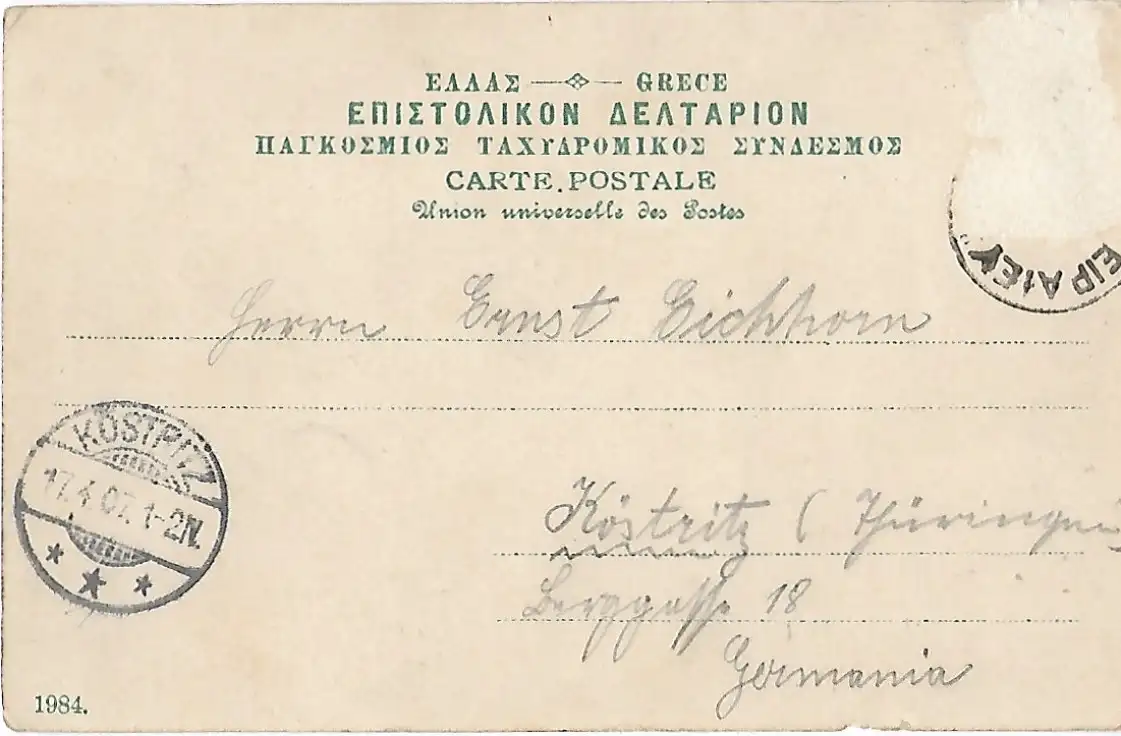 ΕΛΛΑΣ — GRECE
ΕΠΙΣΤΟΛΙΚΟΝ ΔΕΛΤΑΡΙΟΝ
ΠΑΓΚΟΣΜΙΟΣ ΤΑΧΥΔΡΟΜΙΚΟΣ ΣΥΝΔΕΣΜΟΣ
CARTE.POSTALE
Union universelle des Postes
ΕΙΡΑΙΕΥ
Herrn Ernst Eichhorn
KÖSTRITZ
17.4.07. 1-2N.
Köstritz (Thüringen)
Berggasse 18
Germania
1984.